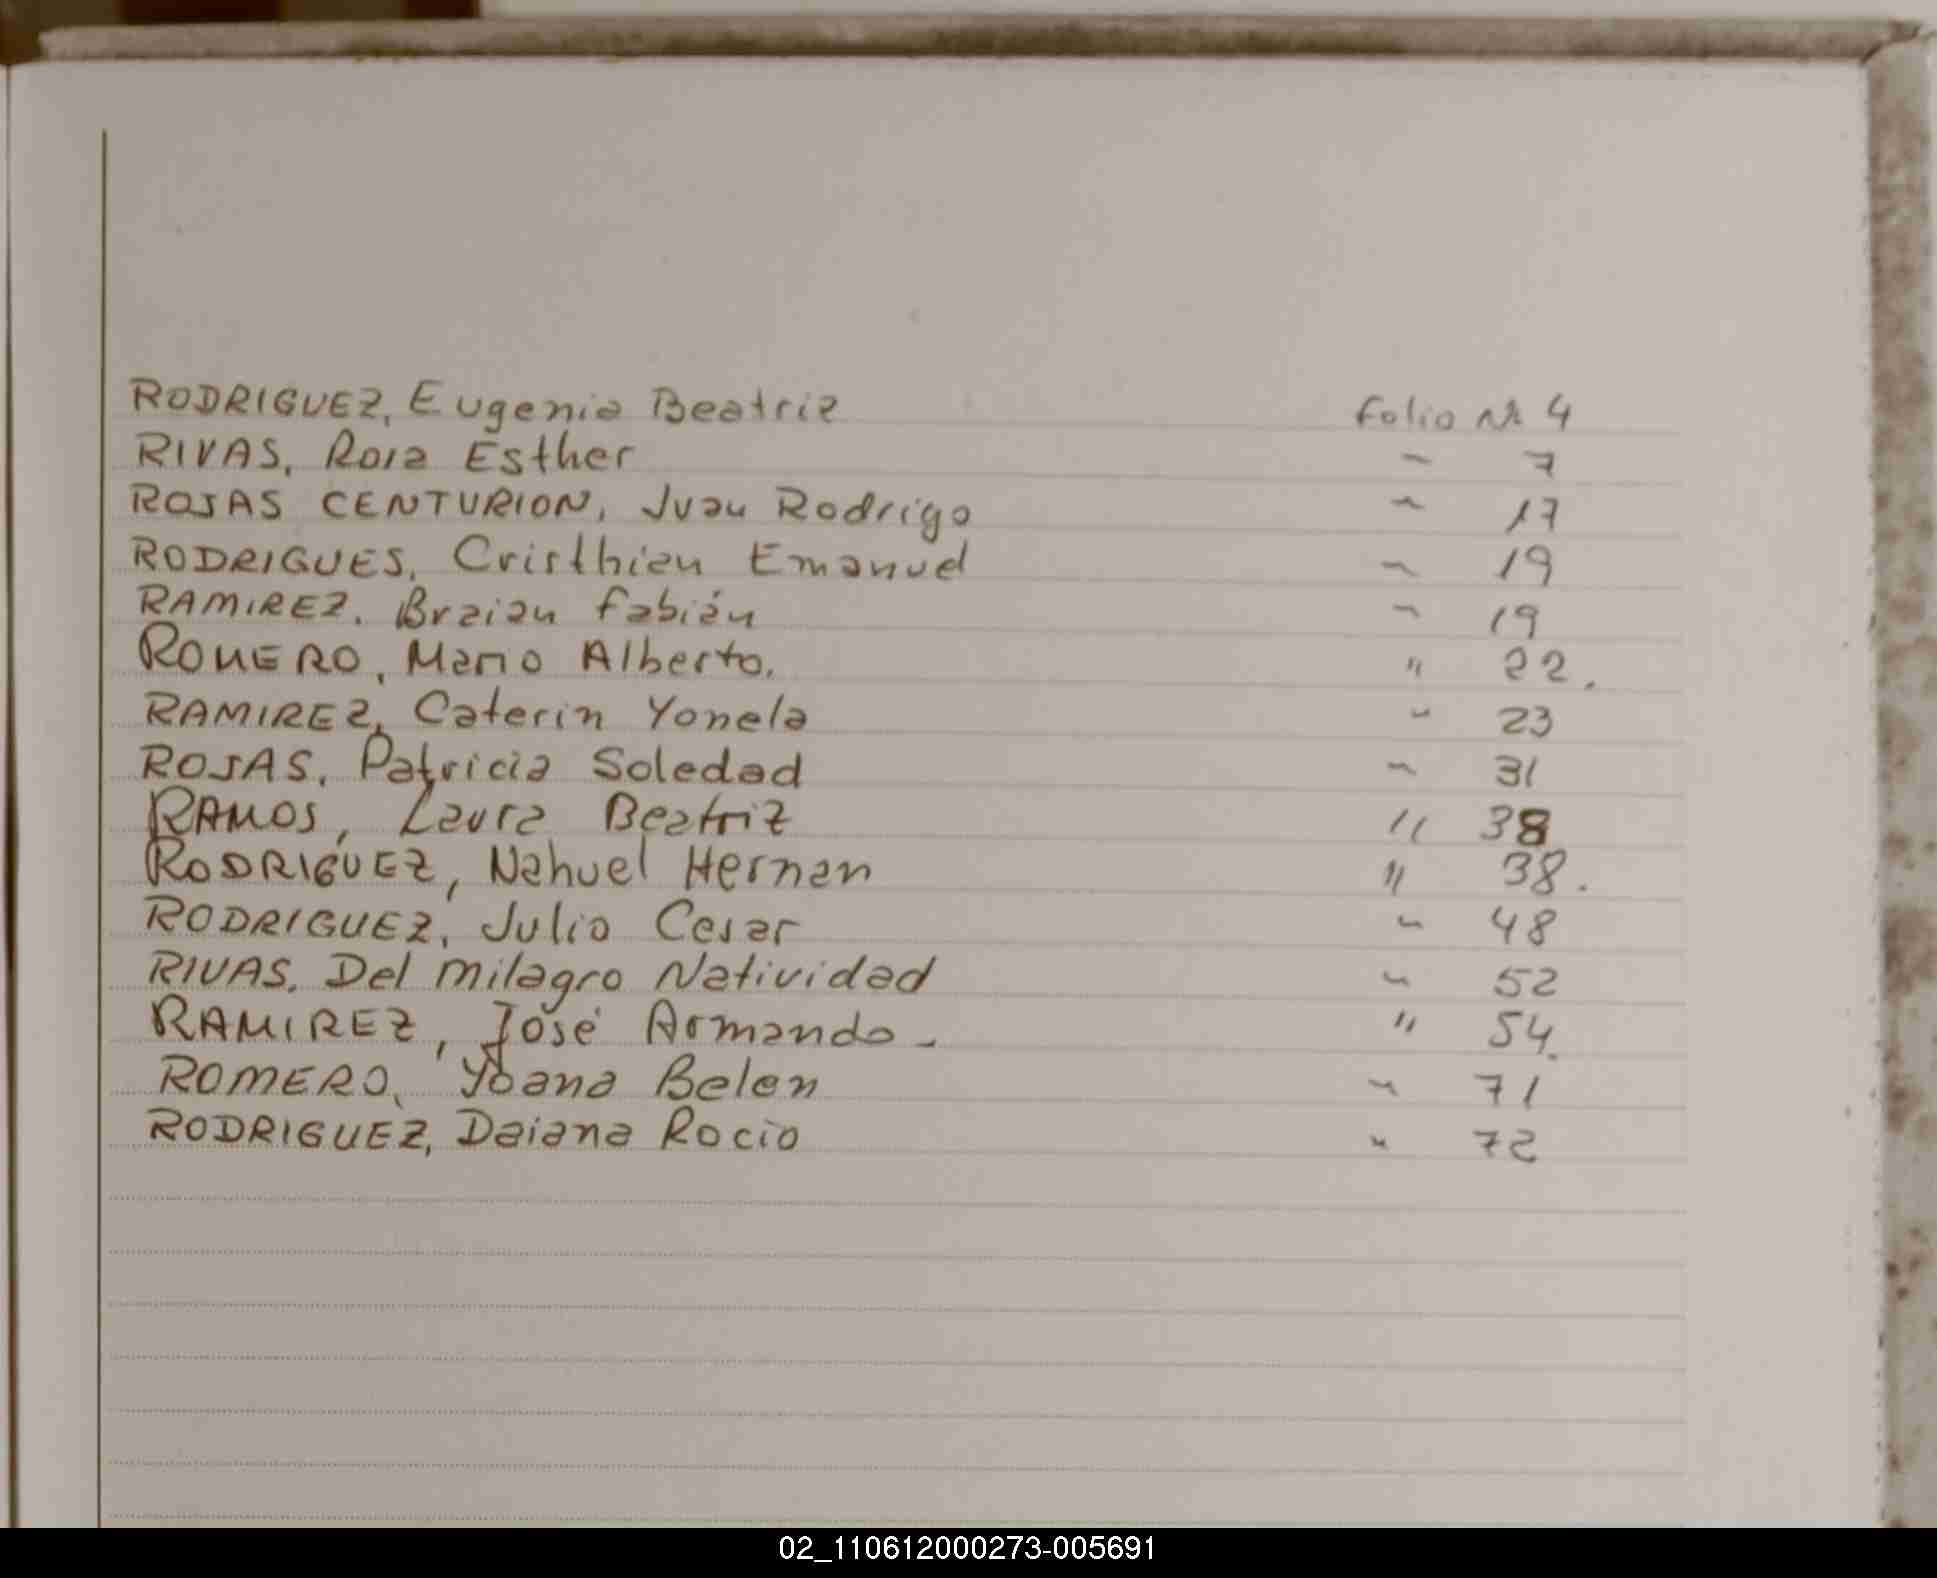 RODRIGUEZ, Eugenia Beatriz Folio Nº 4
RIVAS, Rosa Esther " 7
ROJAS CENTURION, Juan Rodrigo " 17
RODRIGUES, Cristhian Emanuel " 19
RAMIREZ. Braian Fabián " 19
ROMERO, Mario Alberto. " 22.
RAMIREZ, Caterin Yonela " 23
ROJAS, Patricia Soledad " 31
RAMOS, Laura Beatriz " 38
RODRIGUEZ, Nahuel Hernan " 38.
RODRIGUEZ, Julio Cesar " 48
RIVAS, Del milagro Natividad " 52
RAMIREZ, José Armando. " 54.
ROMERO, Yoana Belen " 71
RODRIGUEZ, Daiana Rocio " 72
02_110612000273-005691